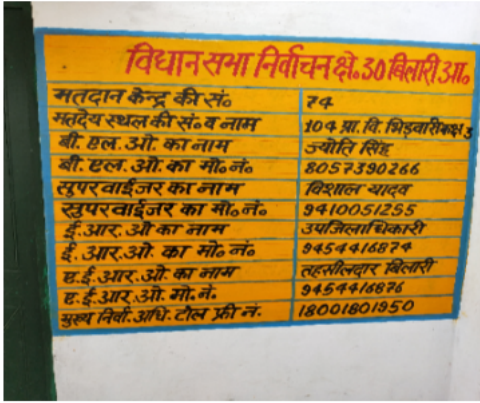 विधान सभा निर्वाचन क्षे० 30 बिलारी आ०
मतदान केन्द्र की सं० 74
मतदेय स्थल की सं० व नाम 104 प्रा. वि. भिड़वारी कक्ष 3
बी. एल. ओ. का नाम ज्योति सिंह
बी. एल. ओ. का मो. नं. 8057390266
सुपरवाईजर का नाम विशाल यादव
सुपरवाईजर का मो० नं० 9410051255
ई. आर. ओ का नाम उपजिलाधिकारी
ई. आर. ओ. का मो. नं. 9454416874
ए. ई. आर. ओ का नाम तहसीलदार बिलारी
ए. ई. आर. ओ. मो. नं. 9454416876
मुख्य निर्वा. अधि. टोल फ्री नं. 18001801950